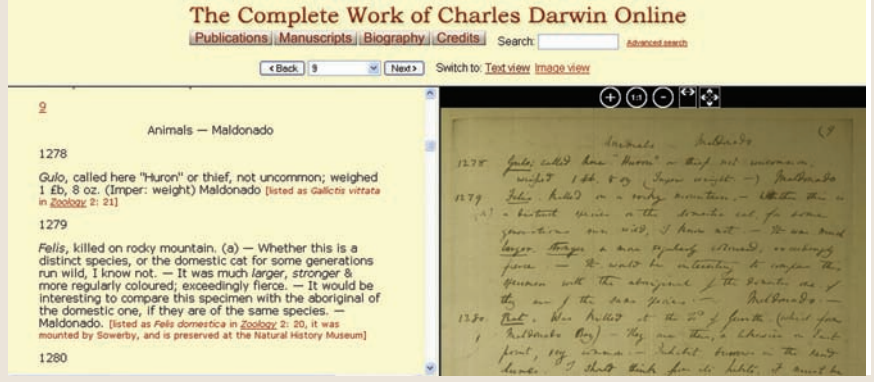 The Complete Work of Charles Darwin Online
Publications Manuscripts Biography Credits Search: Advanced search
< Back 9 Next > Switch to: Text view Image view
9
Animals — Maldonado
1278
Gulo, called here "Huron" or thief, not uncommon; weighed
1 £b, 8 oz. (Imper: weight) Maldonado [listed as Galictis vittata
in Zoology 2: 21]
1279
Felis, killed on rocky mountain. (a) — Whether this is a
distinct species, or the domestic cat for some generations
run wild, I know not. — It was much larger, stronger &
more regularly coloured; exceedingly fierce. — It would be
interesting to compare this specimen with the aboriginal of
the domestic one, if they are of the same species. —
Maldonado. [listed as Felis domestica in Zoology 2: 20, it was
mounted by Sowerby, and is preserved at the Natural History Museum]
1280
1:1
(9
Animals — Maldonado
1278 Gulo, called here "Huron" or thief, not uncommon,
weighed 1 £b. 8 oz (Imper weight. —) Maldonado
1279 Felis. Killed on a rocky mountain. — Whether this is
(a) a distinct species or the domestic cat, for some
generations run wild, I know not — It was much
larger, stronger & more regularly coloured, exceedingly
fierce. — It would be interesting to compare this
specimen with the aboriginal of the domestic one if
they are of the same species. — Maldonado. —
1280 Rat. Was killed at the
Maldonado Bay) — likewise on last
point, very common — Inhabit burrows in the sand
I should think from its habits, it must be